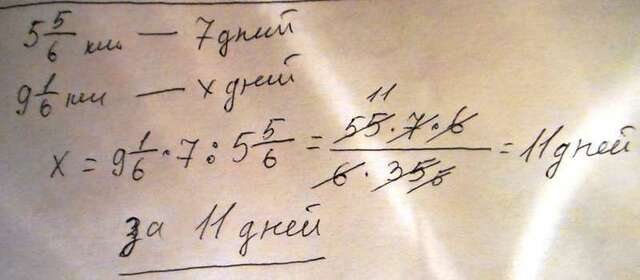 5 5/6 км — 7 дней
9 1/6 км — х дней
х = 9 1/6 · 7 : 5 5/6 = 55 · 7 · 6 / 6 · 35 = 11 дней
11
за 11 дней